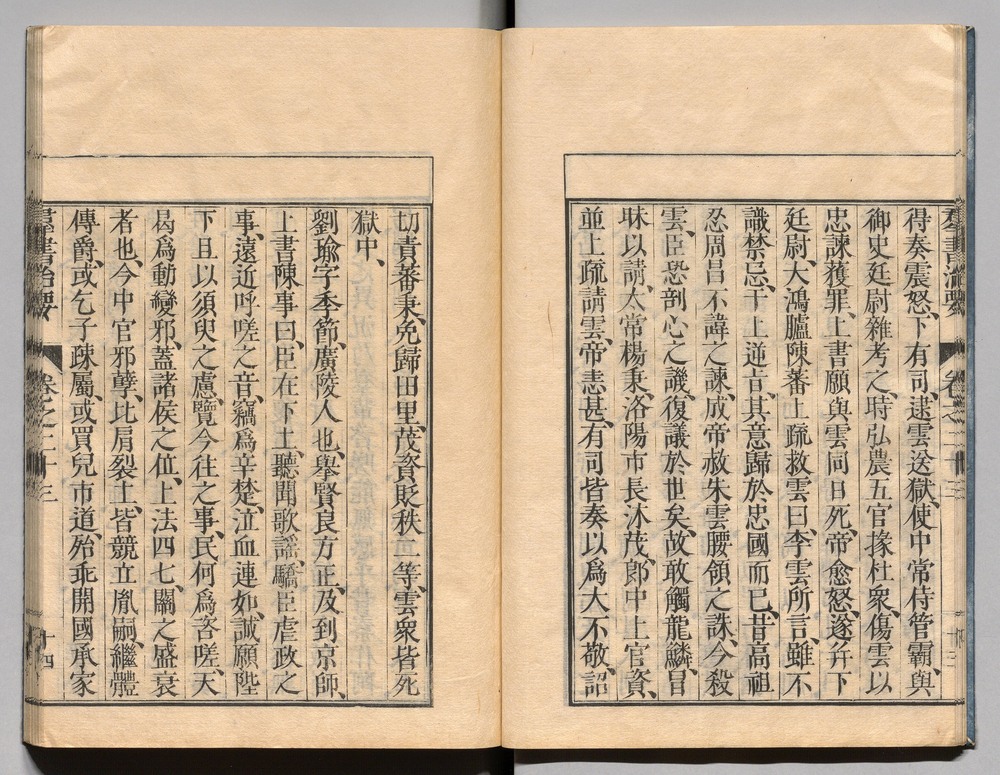 羣書治要 卷之二十三 十三
得奏震怒、下有司、逮雲送獄、使中常侍管霸、與
御史廷尉雜考之、時弘農五官掾杜衆、傷雲以
忠諫獲罪、上書願與雲同日死、帝愈怒、遂并下
廷尉、大鴻臚陳蕃上疏救雲曰、李雲所言、雖不
識禁忌、干上逆旨、其意歸於忠國而已、昔高祖
忍周昌不諱之諫、成帝赦朱雲腰領之誅、今殺
雲、臣恐剖心之譏、復議於世矣、故敢觸龍鱗、冒
昧以請、太常楊秉、洛陽市長沐茂、郎中上官資、
並上疏請雲、帝恚甚、有司皆奏以爲大不敬、詔
切責蕃秉、免歸田里、茂資貶秩二等、雲衆皆死
獄中、
劉瑜字季節、廣陵人也、舉賢良方正、及到京師、
上書陳事曰、臣在下土、聽聞歌謠、驕臣虐政之
事、遠近呼嗟之音、竊爲辛楚、泣血連如、誠願陛
下且以須臾之慮、覽今往之事、民何爲咨嗟、天
曷爲動變邪、蓋諸侯之位、上法四七、關之盛衰
者也、今中官邪孽、比肩裂土、皆競立胤嗣、繼體
傳爵、或乞子疎屬、或買兒市道、殆乖開國承家
羣書治要 卷之二十三 十四